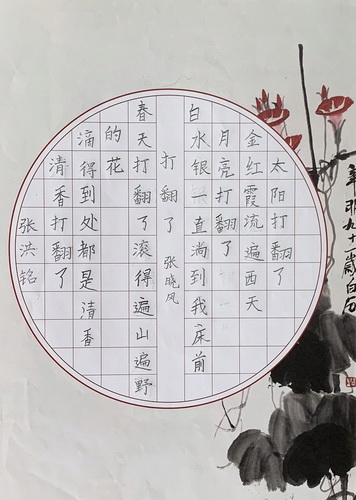 太阳打翻了
金红霞流遍西天
月亮打翻了
白水银一直淌到我床前
打翻了 张晓风
春天打翻了滚得遍山遍野
的花
滴得到处都是清香
清香打翻了
张洪铭